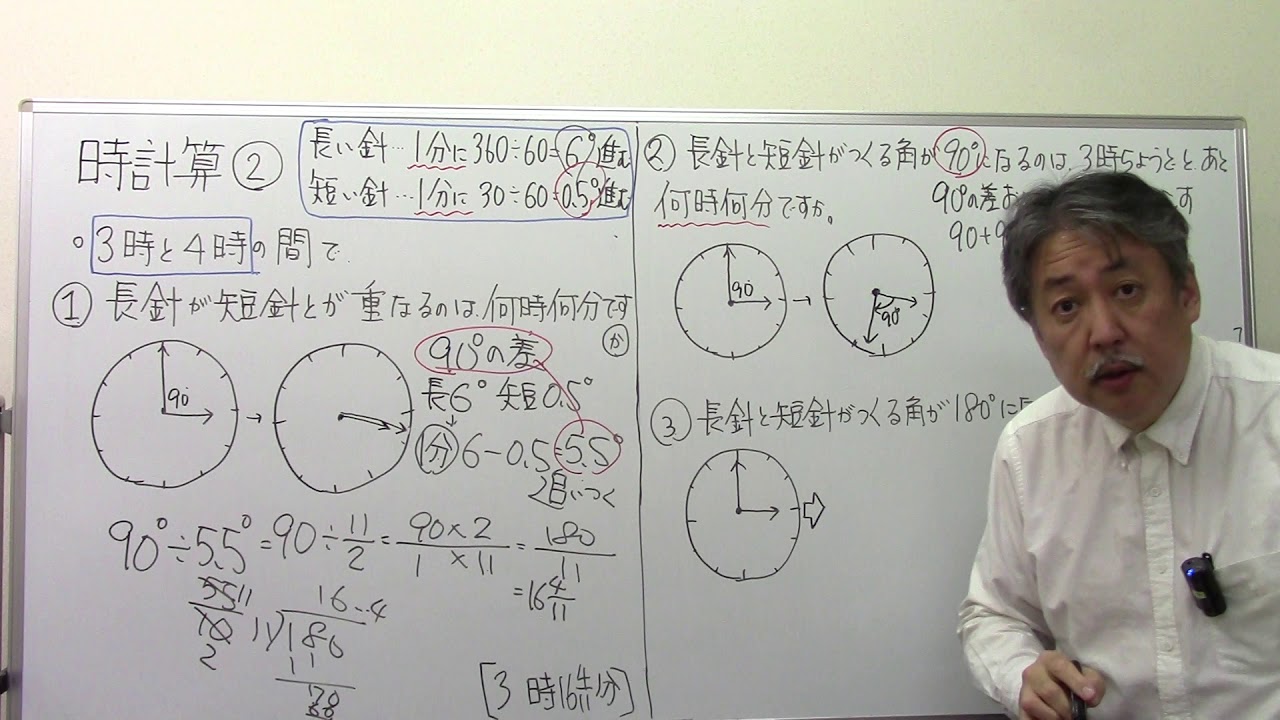 時計算②
長い針…1分に360÷60=6°進む
短い針…1分に30÷60=0.5°進む
。3時と4時の間で
① 長針が短針とが重なるのは、何時何分です
か
90
90°の差
長6° 短0.5°
1分 6-0.5=5.5°
追いつく
90°÷5.5°=90÷11/2=90×2/1×11=180/11
=16 4/11
55 11
10
2
16…4
11)180
11
70
66
[3時16 4/11分]
② 長針と短針がつくる角が90°になるのは、3時ちょうどと、あと
何時何分ですか。
90°の差
90+9
90
90°
③ 長針と短針がつくる角が180°に